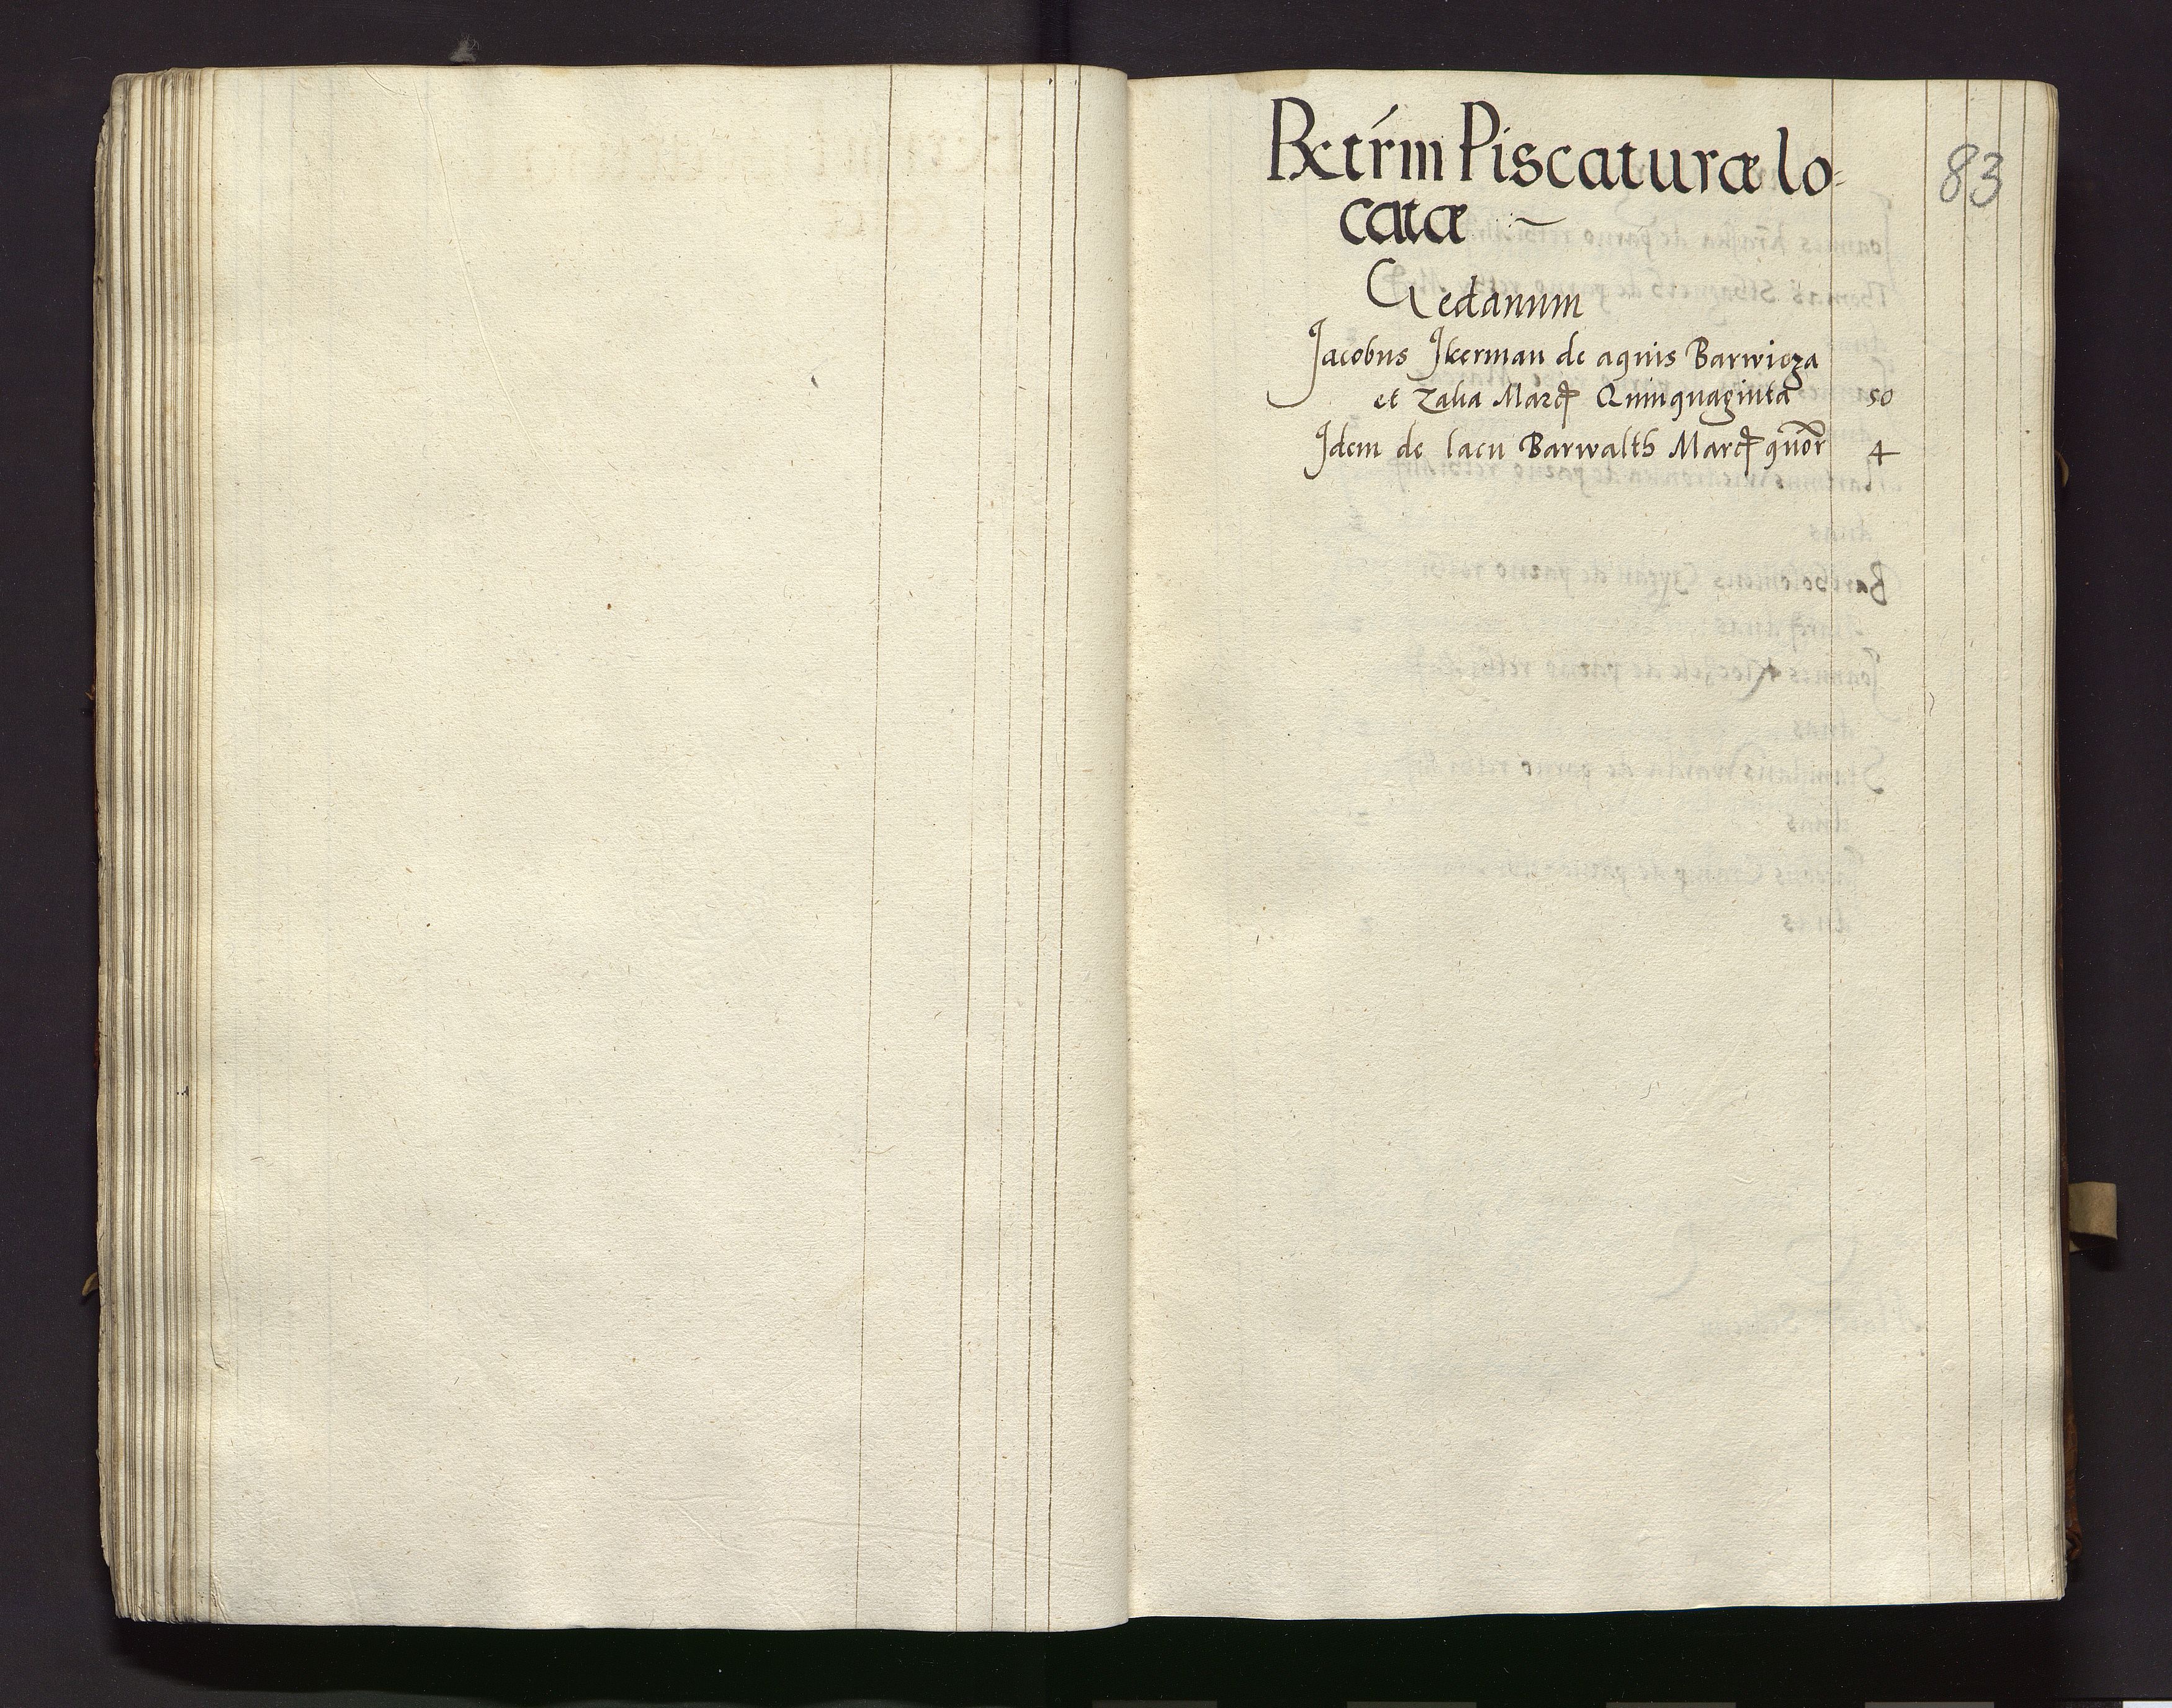 83
Rctrm Piscaturæ lo=
catæ
Gedanum
Jacobus Jkerman de aquis Barwicza
et Zalia Marcꝭ Quinquaginta 50
Jdem de lacu Barwalth Marcꝭ quor 4